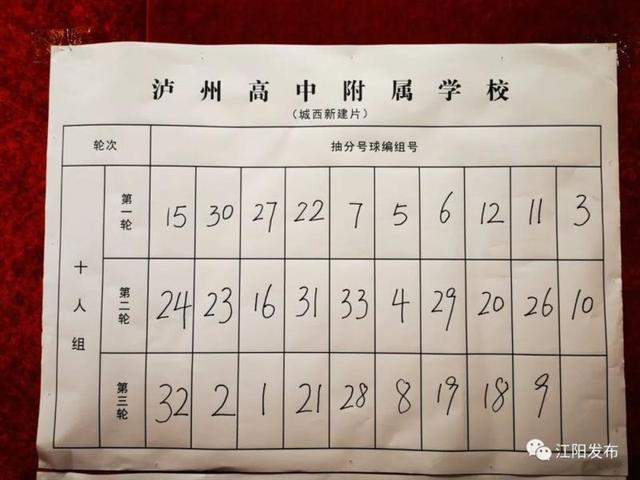 泸州高中附属学校
（城西新建片）
轮次 抽分号球编组号
十人组
第一轮 15 30 27 22 7 5 6 12 11 3
第二轮 24 23 16 31 33 4 29 20 26 10
第三轮 32 2 1 21 28 8 19 18 9
江阳发布